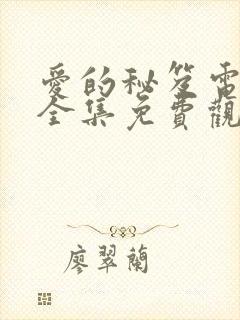 愛的秘笈電
全集免費觀
廖翠蘭